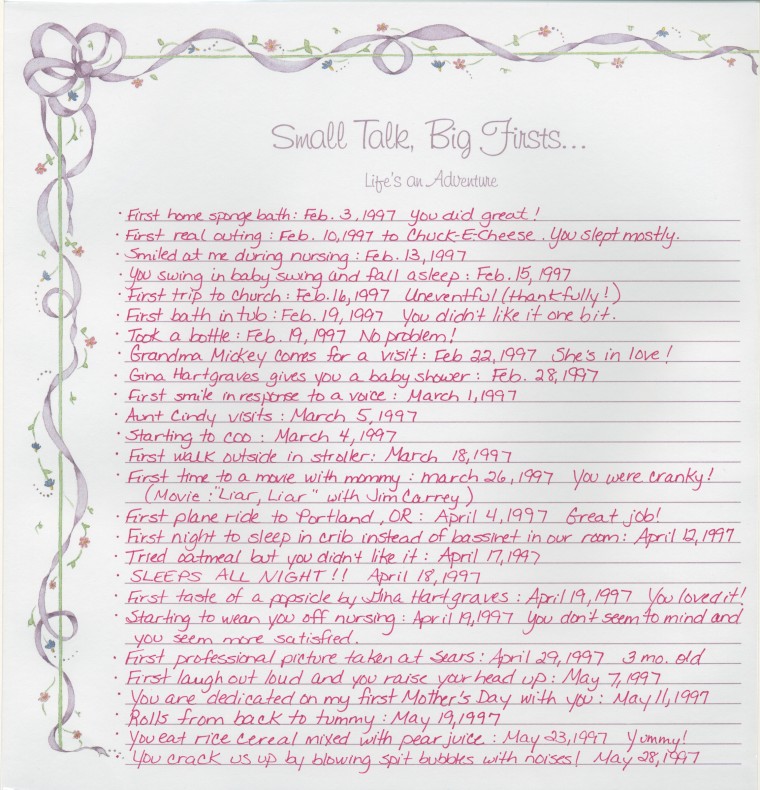 Small Talk, Big Firsts...
Life's an Adventure
· First home sponge bath: Feb. 3, 1997 You did great!
· First real outing: Feb. 10, 1997 to Chuck-E-Cheese. You slept mostly.
· Smiled at me during nursing: Feb. 13, 1997
· You swing in baby swing and fall asleep: Feb. 15, 1997
· First trip to church: Feb. 16, 1997 Uneventful (thankfully!)
· First bath in tub: Feb. 19, 1997 You didn't like it one bit.
· Took a bottle: Feb. 19, 1997 No problem!
· Grandma Mickey comes for a visit: Feb 22, 1997 She's in love!
· Gina Hartgraves gives you a baby shower: Feb. 28, 1997
· First smile in response to a voice: March 1, 1997
· Aunt Cindy visits: March 5, 1997
· Starting to coo: March 4, 1997
· First walk outside in stroller: March 18, 1997
· First time to a movie with mommy: march 26, 1997 You were cranky!
(Movie: "Liar, Liar" with Jim Carrey)
· First plane ride to Portland, OR: April 4, 1997 Great job!
· First night to sleep in crib instead of bassinet in our room: April 12, 1997
· Tried oatmeal but you didn't like it: April 17, 1997
· SLEEPS ALL NIGHT!! April 18, 1997
· First taste of a popsicle by Gina Hartgraves: April 19, 1997 You loved it!
· Starting to wean you off nursing: April 19, 1997 You don't seem to mind and
you seem more satisfied.
· First professional picture taken at Sears: April 29, 1997 3 mo. old
· First laugh out loud and you raise your head up: May 7, 1997
· You are dedicated on my first Mother's Day with you: May 11, 1997
· Rolls from back to tummy: May 19, 1997
· You eat rice cereal mixed with pear juice: May 23, 1997 Yummy!
· You crack us up by blowing spit bubbles with noises! May 28, 1997